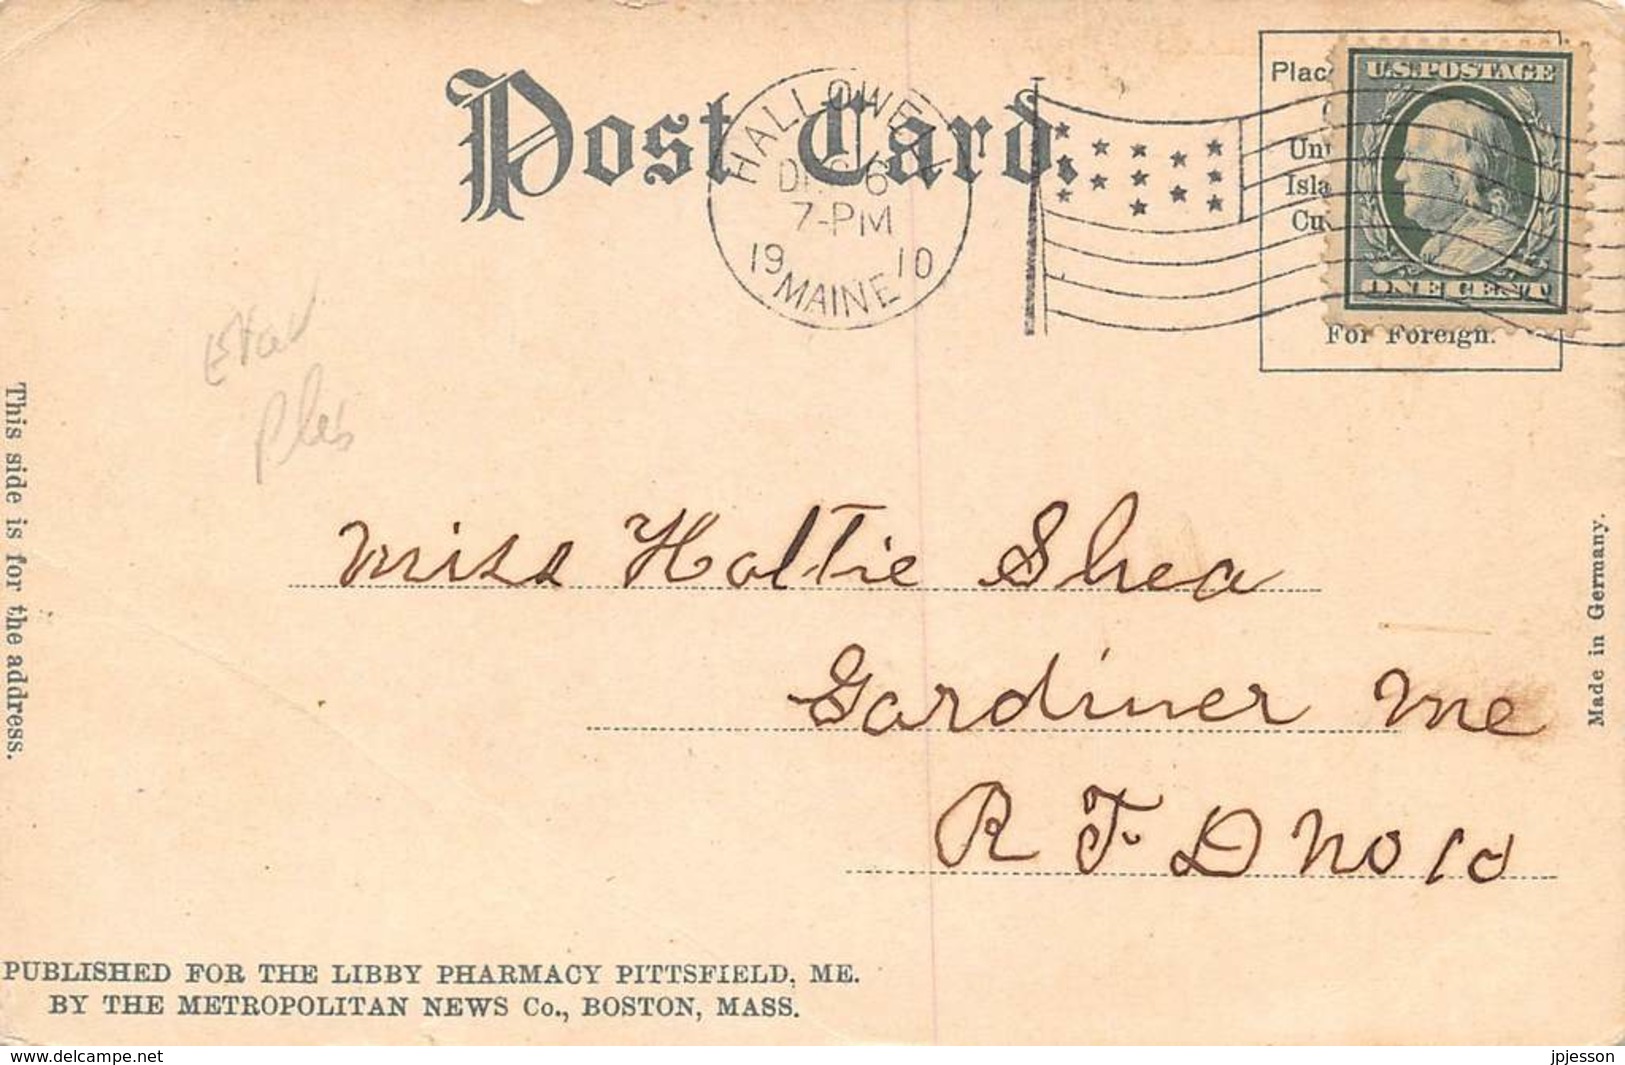 Post Card.
HALLOWELL
DEC 6
7-PM
1910
MAINE
Plac
Un
Isla
Cu
For Foreign.
U.S. POSTAGE
ONE CENT
This side is for the address.
Made in Germany.
Miss Hattie Shea
Gardiner Me
R F D No 10
PUBLISHED FOR THE LIBBY PHARMACY PITTSFIELD, ME.
BY THE METROPOLITAN NEWS Co., BOSTON, MASS.
www.delcampe.net
jpjesson